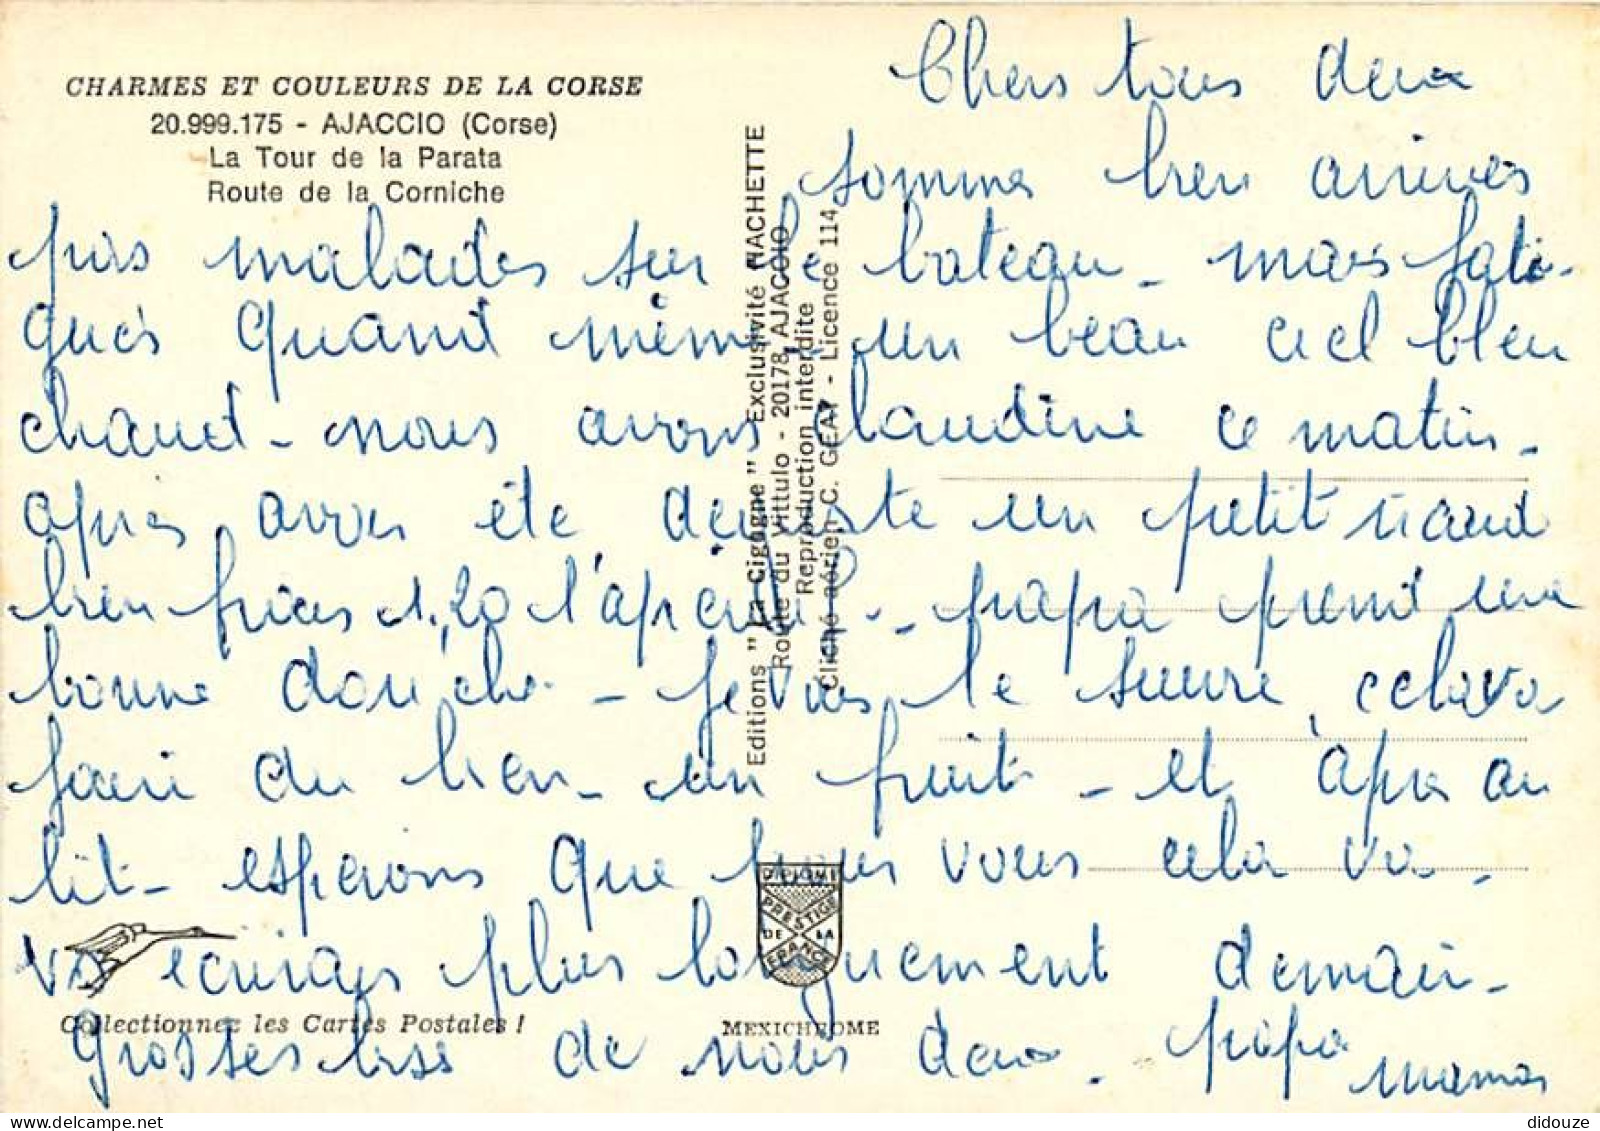 CHARMES ET COULEURS DE LA CORSE
20.999.175 - AJACCIO (Corse)
La Tour de la Parata
Route de la Corniche
Chers tous deux
sommes bien arrivés
pas malades sur le bateau - mais fati-
gués quand même - un beau ciel bleu
chaud - nous avons Claudine ce matin -
après avoir été déguste un petit ricard
bien frais 1,20 l'apéritif - papa prend une
bonne douche - je vais le suivre, cela va
faire du bien - un fruit - et après au
lit - espérons que pour vous cela va -
vs écrirons plus longuement demain -
Grosses bises de nous deux - papa
maman
Editions "La Cigogne" Exclusivité HACHETTE
Route du Vittulo - 20178 AJACCIO
Reproduction interdite
Cliché aérien C. GEAY - Licence 114
DIPLOME
PRESTIGE
DE LA
FRANCE
Collectionnez les Cartes Postales !
MEXICHROME
didouze